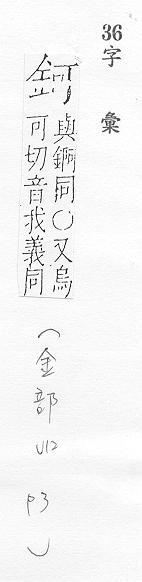 36字 彙
鈳
與錒同〇又烏
可切音我義同
（金部 P3）